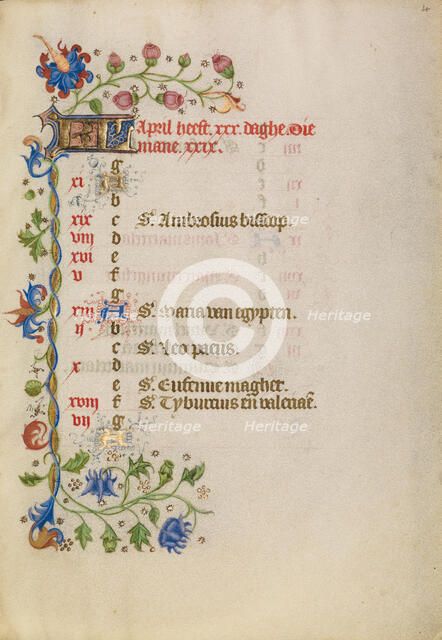 4
KL April heeft .xxx. daghe. Die
mane. xxix.
g
xi A
b
xix c S. Ambrosius bisscop.
viii d
xvi e
v f
g
xiii A S. Maria van egypten.
ii b
c S. Leo paeus.
x d
e S. Eufemie maghet.
xviii f S. Tyburcius eñ
vii g
A
Heritage Heritage
Heritage Heritage
Heritage Heritage